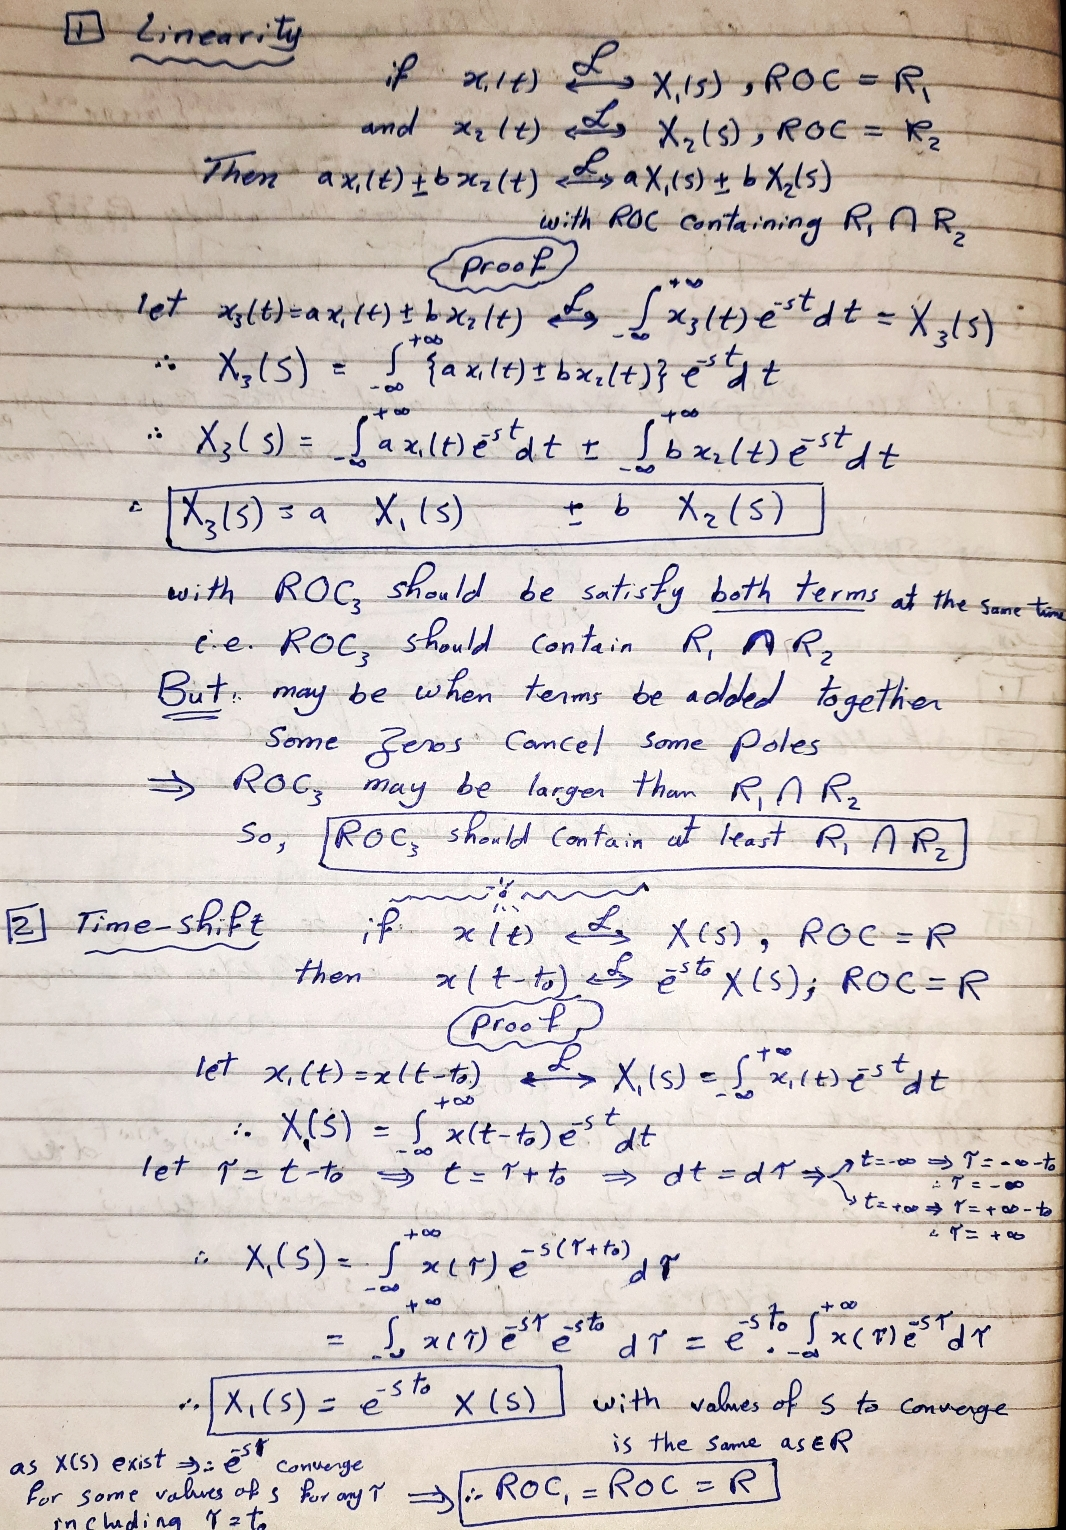 1 Linearity
if x₁(t) ⟷ℒ X₁(s), ROC = R₁
and x₂(t) ⟷ℒ X₂(s), ROC = R₂
Then ax₁(t) ± bx₂(t) ⟷ℒ aX₁(s) ± bX₂(s)
with ROC containing R₁ ∩ R₂
proof
let x₃(t) = ax₁(t) ± bx₂(t) ⟷ℒ ∫_{-∞}^{+∞} x₃(t) e^{-st} dt = X₃(s)
∴ X₃(s) = ∫_{-∞}^{+∞} {ax₁(t) ± bx₂(t)} e^{-st} dt
∴ X₃(s) = ∫_{-∞}^{+∞} ax₁(t) e^{-st} dt ± ∫_{-∞}^{+∞} bx₂(t) e^{-st} dt
∴ X₃(s) = a X₁(s) ± b X₂(s)
with ROC₃ should be satisfy both terms at the same time
i.e. ROC₃ should contain R₁ ∩ R₂
But: may be when terms be added together
some zeros cancel some poles
⇒ ROC₃ may be larger than R₁ ∩ R₂
So, ROC₃ should contain at least R₁ ∩ R₂
2 Time-shift if x(t) ⟷ℒ X(s), ROC = R
then x(t-t₀) ⟷ℒ e^{-st₀} X(s); ROC = R
proof
let x₁(t) = x(t-t₀) ⟷ℒ X₁(s) = ∫_{-∞}^{+∞} x₁(t) e^{-st} dt
∴ X₁(s) = ∫_{-∞}^{+∞} x(t-t₀) e^{-st} dt
let τ = t-t₀ ⇒ t = τ+t₀ ⇒ dt = dτ ⇒ t=-∞ ⇒ τ=-∞-t₀
∴ τ = -∞
t=+∞ ⇒ τ=+∞-t₀
∴ τ = +∞
∴ X₁(s) = ∫_{-∞}^{+∞} x(τ) e^{-s(τ+t₀)} dτ
= ∫_{-∞}^{+∞} x(τ) e^{-sτ} e^{-st₀} dτ = e^{-st₀} . ∫_{-∞}^{+∞} x(τ) e^{-sτ} dτ
∴ X₁(s) = e^{-st₀} X(s) with values of s to converge
is the same as ∈ R
as X(s) exist ⇒ ∴ e^{-sτ} converge
for some values of s for any τ ⇒ ∴ ROC₁ = ROC = R
including τ = t₀